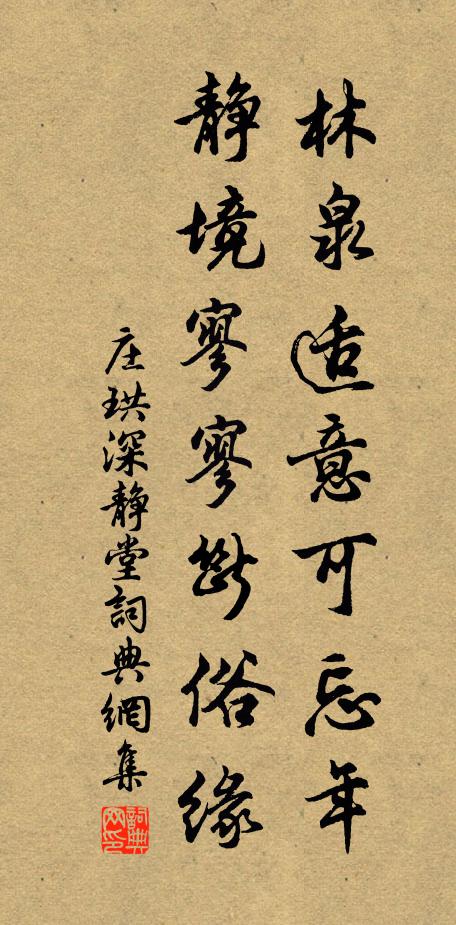 林泉适意可忘年
静境寥寥断俗缘
庄珙深静堂詞典網集
詞典网印